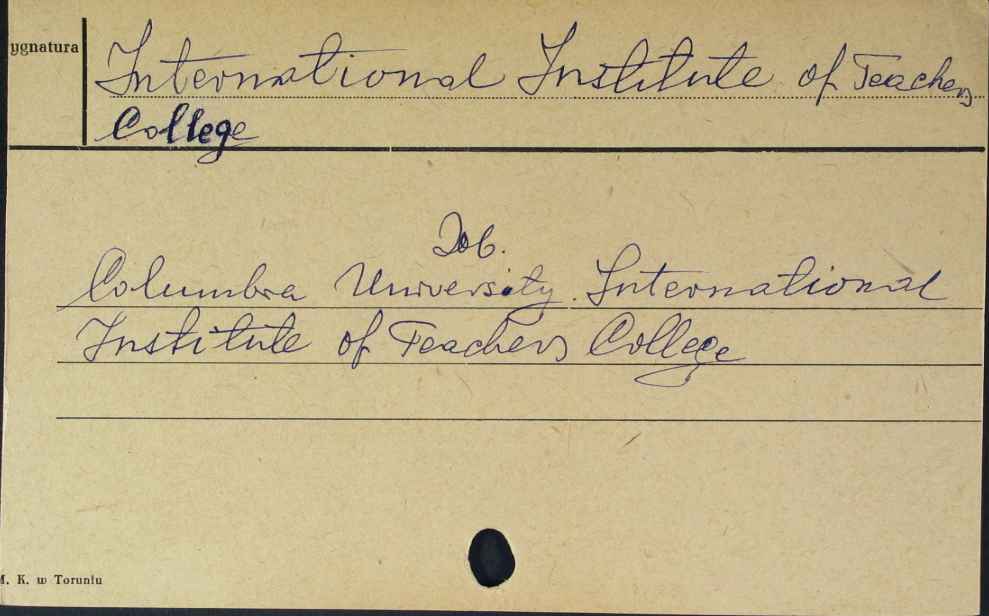 ygnatura
International Institute of Teachers
College
Zob.
Columbia University. International
Institute of Teachers College
M. K. w Toruniu